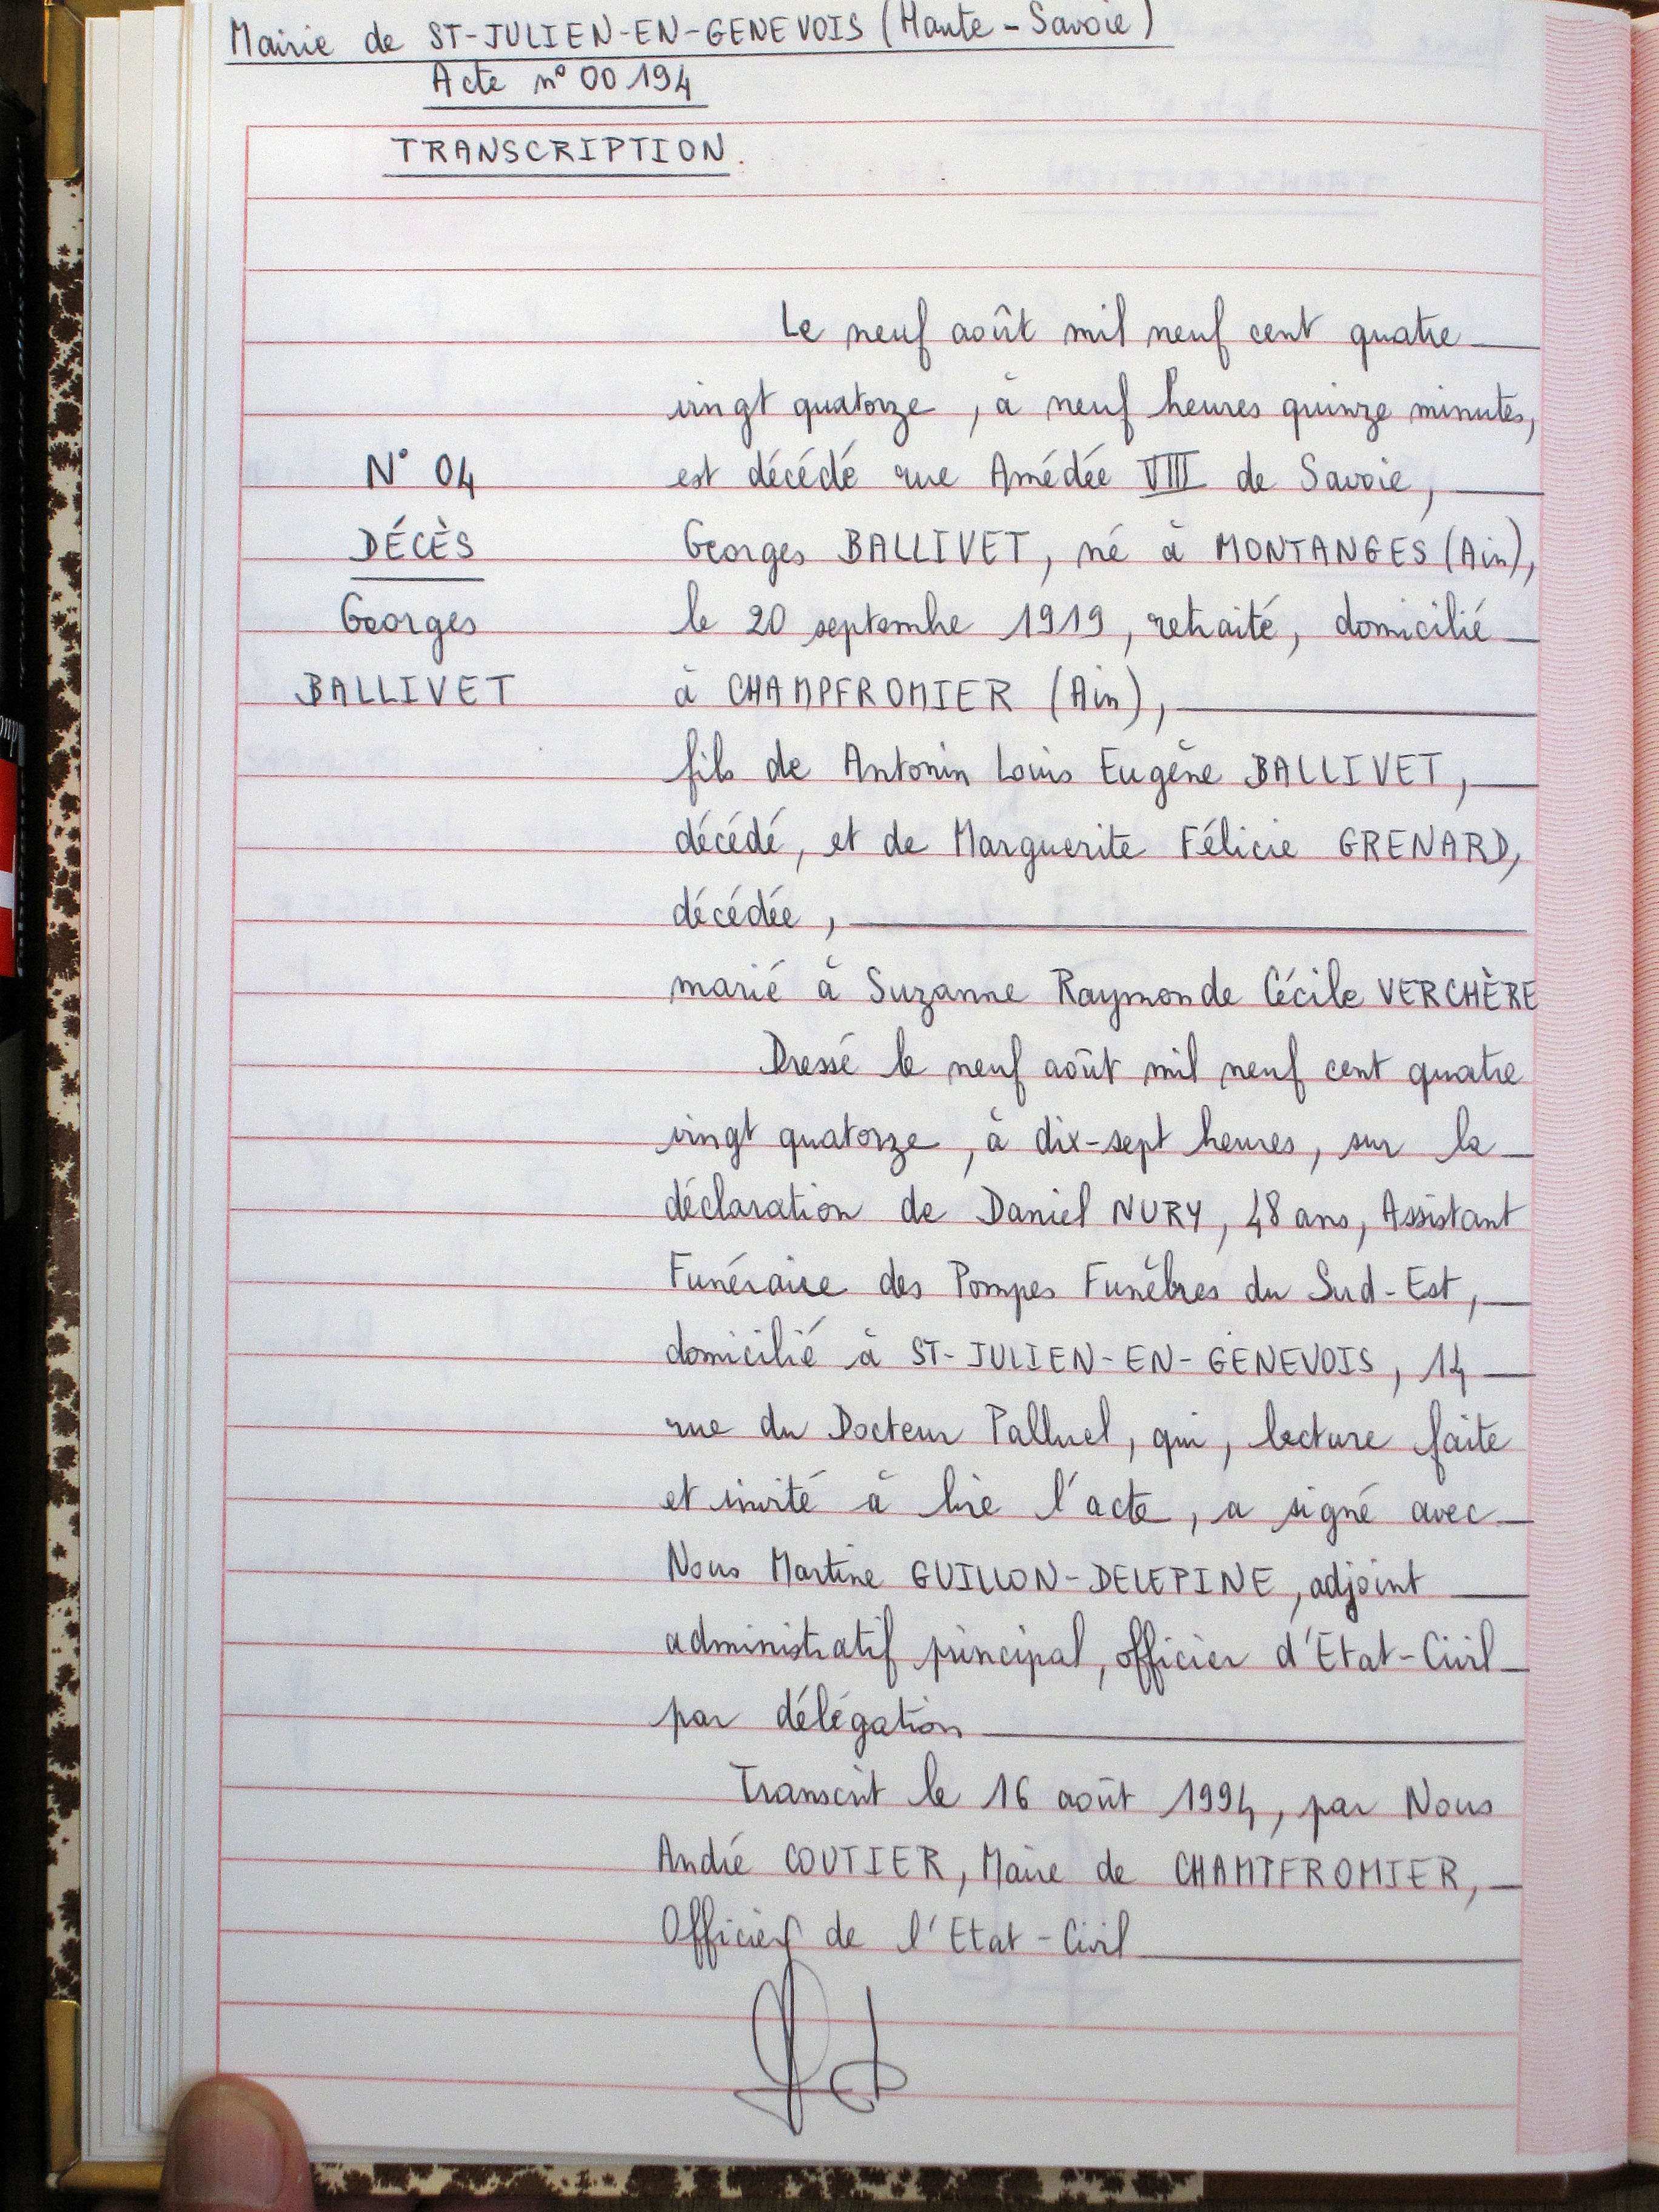 Mairie de ST-JULIEN-EN-GENEVOIS (Haute-Savoie)
Acte n° 00194
TRANSCRIPTION.
Le neuf août mil neuf cent quatre
vingt quatorze, à neuf heures quinze minutes,
N° 04
est décédé rue Amédée VIII de Savoie,
DÉCÈS
Georges BALLIVET, né à MONTANGES (Ain),
Georges
le 20 septembre 1919, retraité, domicilié
BALLIVET
à CHAMPFROMIER (Ain),
fils de Antonin Louis Eugène BALLIVET,
décédé, et de Marguerite Félicie GRENARD,
décédée,
marié à Suzanne Raymonde Cécile VERCHÈRE
Dressé le neuf août mil neuf cent quatre
vingt quatorze, à dix-sept heures, sur la
déclaration de Daniel NURY, 48 ans, Assistant
Funéraire des Pompes Funèbres du Sud-Est,
domicilié à ST-JULIEN-EN-GENEVOIS, 14
rue du Docteur Palluel, qui, lecture faite
et invité à lire l'acte, a signé avec
Nous Martine GUILLON-DELEPINE, adjoint
administratif principal, officier d'Etat-Civil
par délégation
Transcrit le 16 août 1994, par Nous
André COUTIER, Maire de CHAMPFROMIER,
Officier de l'Etat-Civil